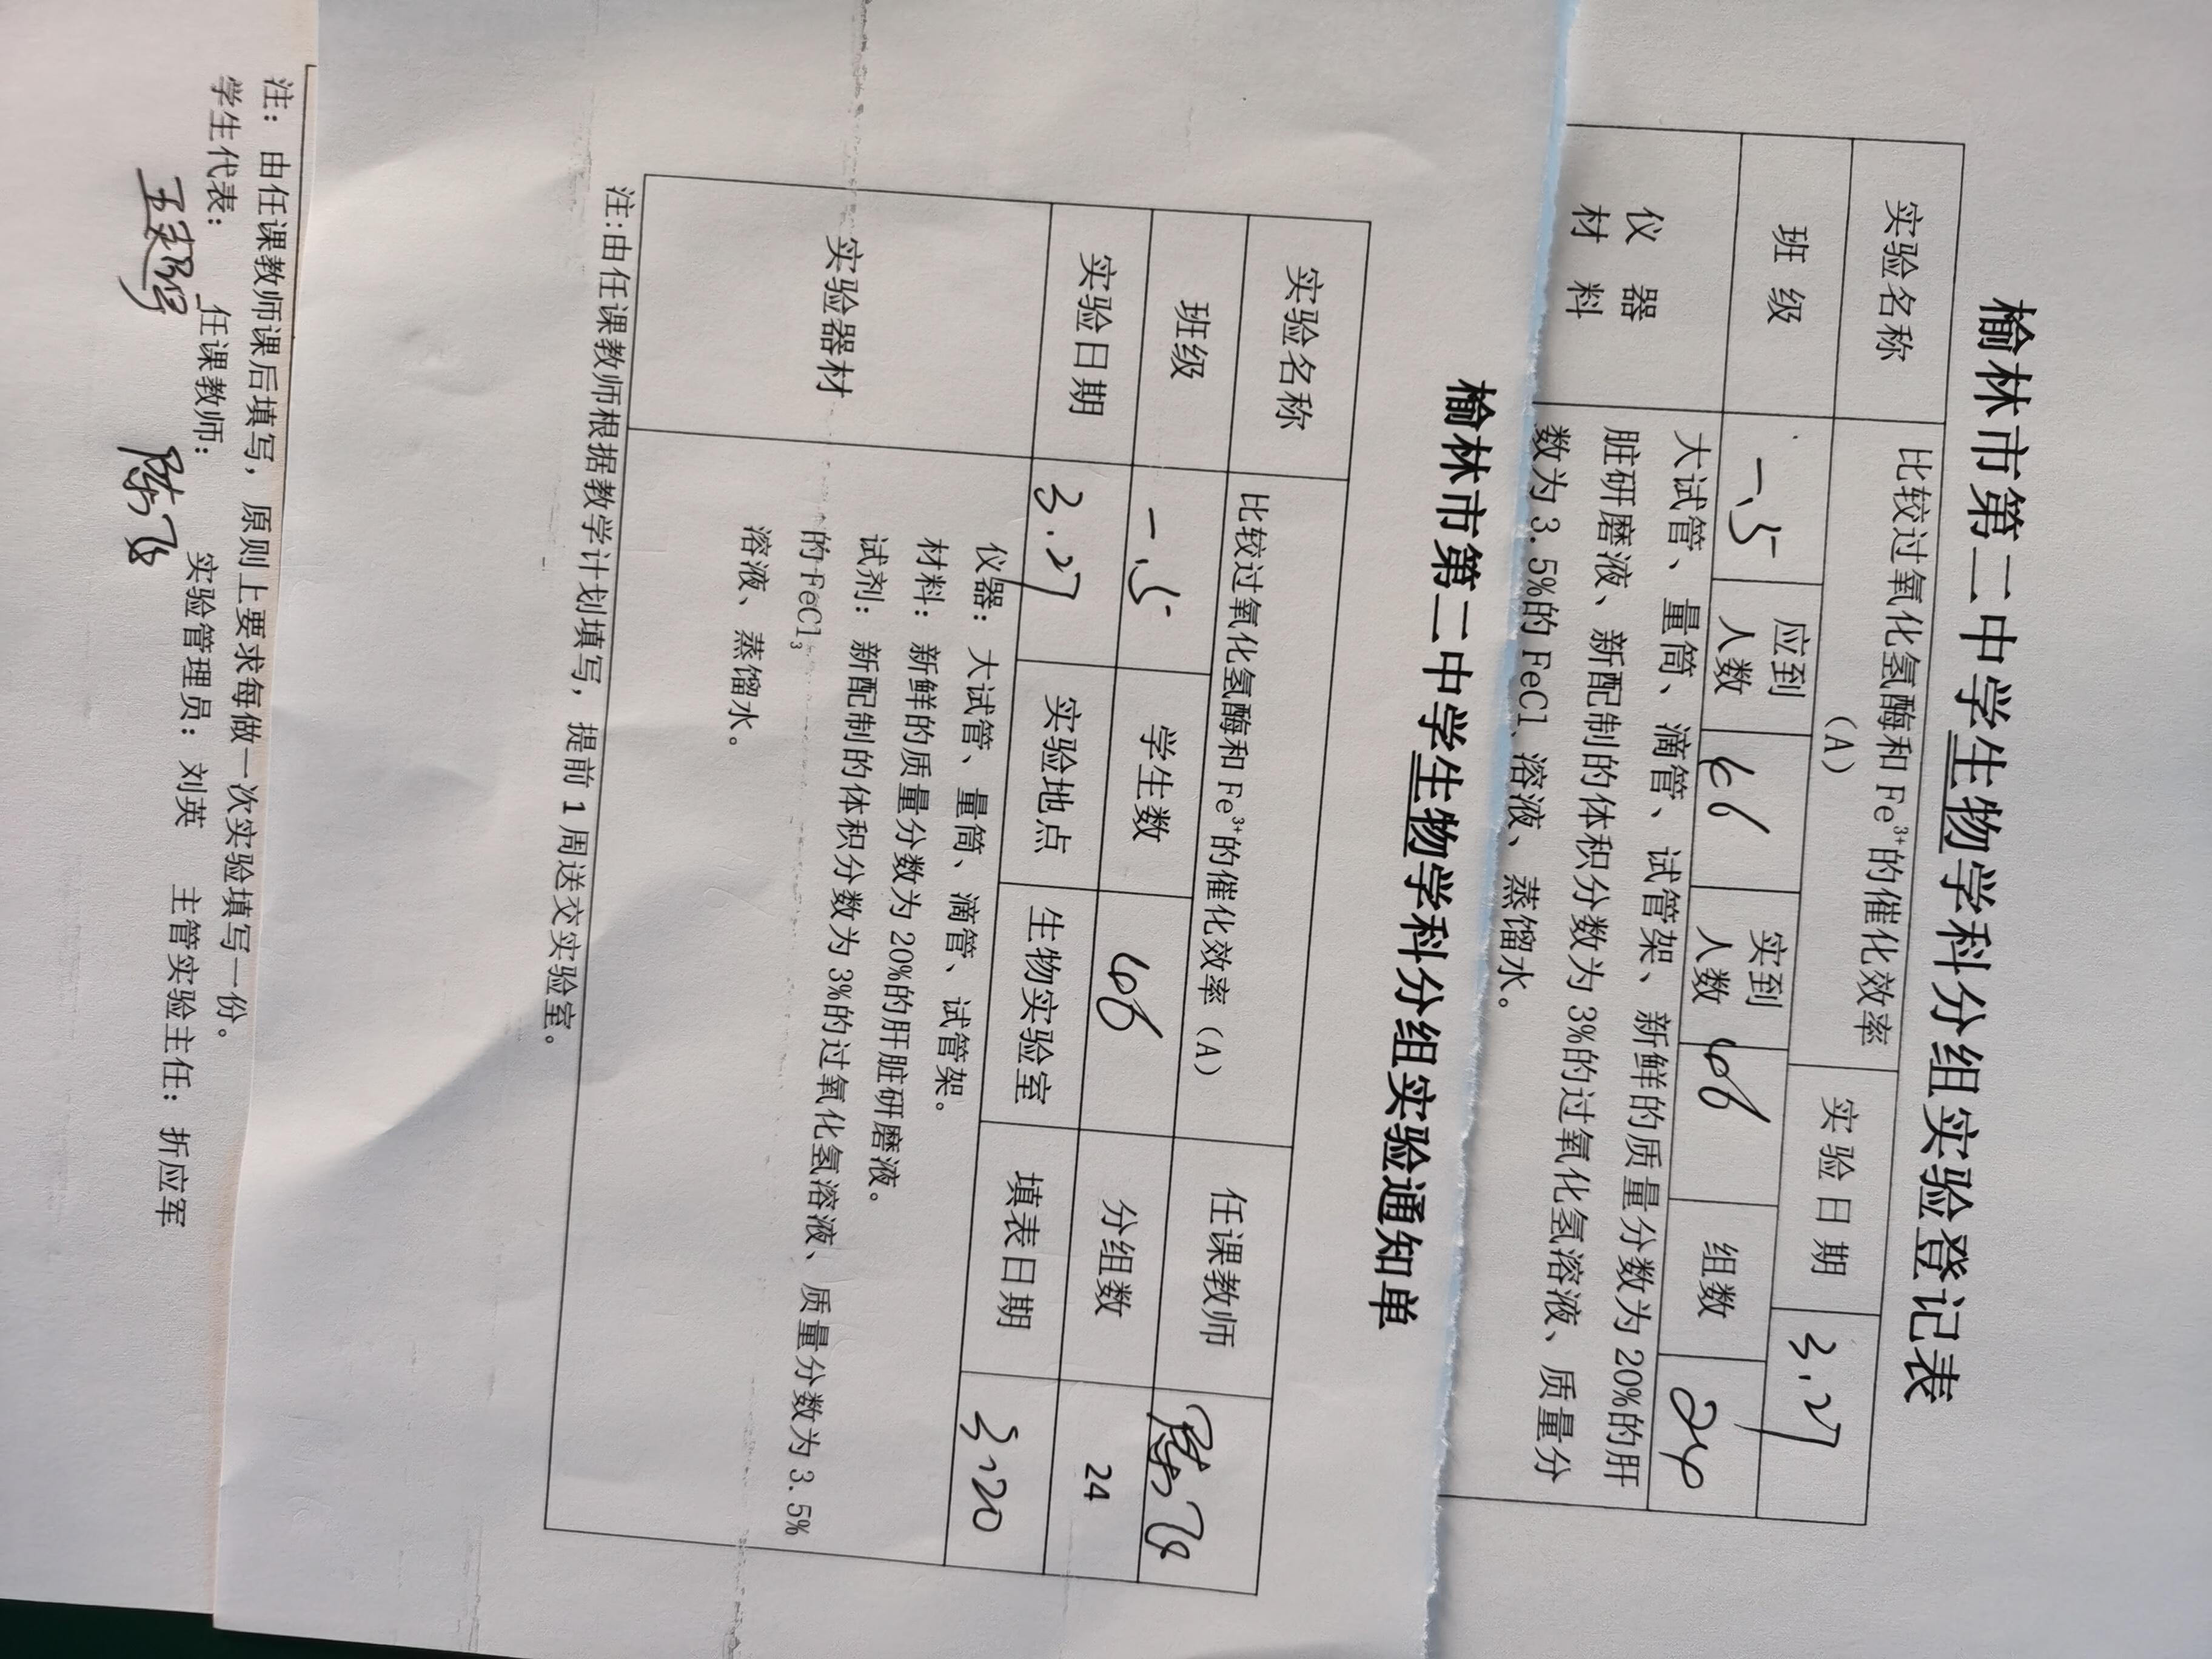 榆林市第二中学生物学科分组实验登记表
实验名称 比较过氧化氢酶和 Fe³⁺的催化效率（A） 实验日期 3.27
班 级 一.5 应到人数 66 实到人数 66 组数 24
仪 器 材 料
大试管、量筒、滴管、试管架、新鲜的质量分数为 20%的肝
脏研磨液、新配制的体积分数为 3%的过氧化氢溶液、质量分
数为 3.5%的 FeCl 溶液、蒸馏水。
榆林市第二中学生物学科分组实验通知单
实验名称 比较过氧化氢酶和 Fe³⁺的催化效率（A） 任课教师 陈飞
班级 一.5 学生数 66 分组数 24
实验日期 3.27 实验地点 生物实验室 填表日期 3.20
实验器材
仪器：大试管、量筒、滴管、试管架。
材料：新鲜的质量分数为 20%的肝脏研磨液。
试剂：新配制的体积分数为 3%的过氧化氢溶液、质量分数为 3.5%
的 FeCl₃
溶液、蒸馏水。
注:由任课教师根据教学计划填写，提前 1 周送交实验室。
注：由任课教师课后填写，原则上要求每做一次实验填写一份。
学生代表： 任课教师：陈飞 实验管理员：刘英 主管实验主任：折应军